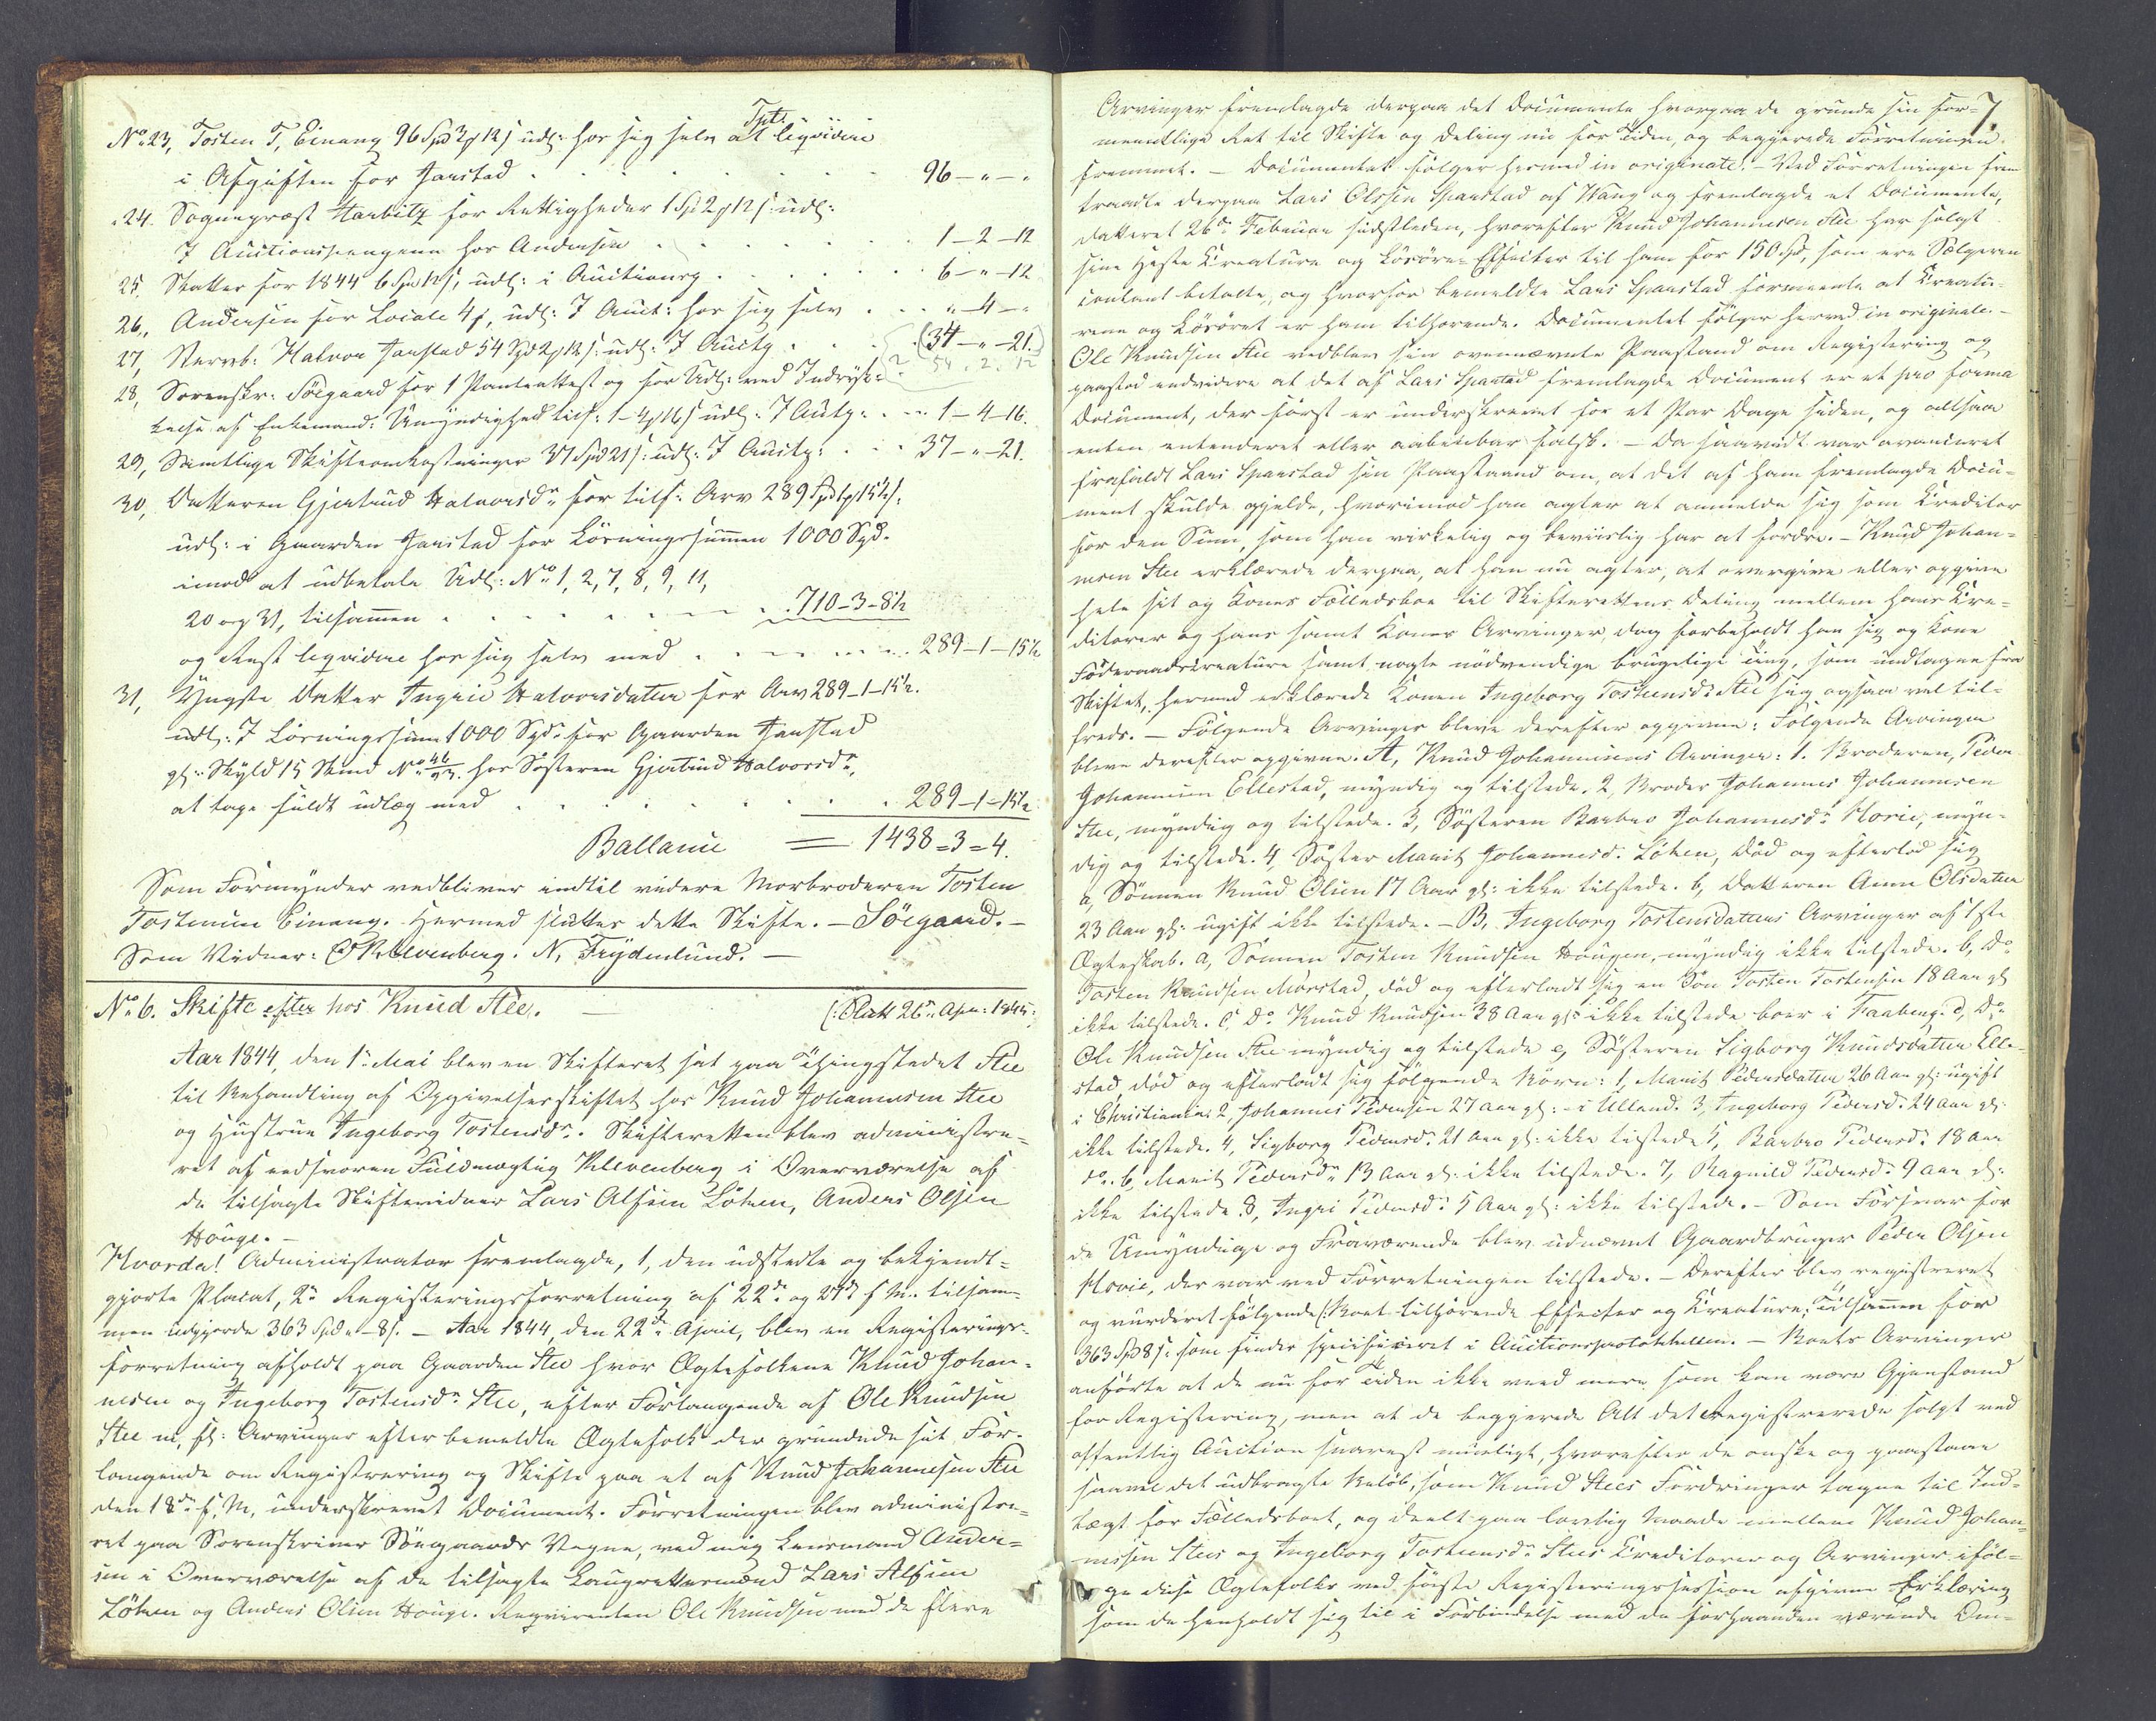 No 23, Tosten T, Einang 96 Spd 3 12 s udl: hos sig selv at liqvidere
i Afgiften for Jarstad . . . 96 - " - "
24. Sognepræst Harbitz for Rettigheder 1 Sp 2 12 s: udl:
I Auctionspengene hos Andersen . . . 1 - 2 - 12
25. Skatter for 1844 6 Spd 12 s, udl: i Auctionsp. . . . 6 - " - 12
26, Andersen for Locale 4, udl: I Auct: hos sig selv . . . " - 4 - "
27, Halvor Jarstad 54 Spd 2 12 s: udl: I Auctp . . . (34 - " - 21.)
54. 2. 12
28, Sorenskr: Söegaard for 1 Panteattest og for Udl: ved Indryk-
kelse af Enkemand: Umyndighed tils: 1 - 4 16 s udl: I Autp: . . . 1 - 4 - 16.
29, Samtlige Skifteomkostninger 37 Spd 21 s: udl: I Auctp: . . . 37 - " - 21.
30, Datteren Gjertrud Halvorsdr. for tilf: Arv 289 Spd 1 15½ s.
udl: i Gaarden Jarstad for Lösningssummen 1000 Spd.
imod at udbetale Udl: No 1, 2, 7, 8, 9, 11,
20 og 31, tilsammen . . . 710 - 3 - 8½
og Rest liqvidere hos sig selv med . . . 289 - 1 - 15½
31, Yngste Datter Ingrie Halvorsdatter for Arv 289 - 1 - 15½.
udl: I Lösningssum 1000 Spd. for Gaarden Jarstad
gl: Skyld 15 Skind No 46/93. hos Søsteren Gjertrud Halvorsdr,
at tage fuldt udlæg med . . . 289 - 1 - 15½
Ballance = 1438 = 3 = 4.
Som Formynder vedbliver indtil videre Morbroderen Tosten
Tostensen Einang. Hermed sluttes dette Skifte. - Söegaard. -
Som Vidner: Klevenberg. N, Frydenlund. -
No 6. Skifte efter hos Knud Stee. - (: Slutt 26de Apr: 1845:
Aar 1844, den 1te Mai blev en Skifteret sat paa Thingstedet Stee
til Behandling af Opgivelsesskiftet hos Knud Johannesen Stee
og Hustrue Ingeborg Tostensdr. Skifteretten blev administre-
ret af edsvoren Fuldmægtig Klevenberg i Overværelse af
de tilsagte Skiftevidner Lars Alfsen Löken, Anders Olsen
Houge. -
Hvorda! Administrator fremlagde, 1, den udstedte og bekjendt-
gjorte Placat, 2de Registeringsforretning af 22de og 27de f M. tilsam-
men udgjorde 363 Spd " - 8 s. - Aar 1844, den 22de April, blev en Registerings-
forretning afholdt paa Gaarden Stee hvor Ægtefolkene Knud Johan-
nesen og Ingeborg Tostensdr Stee, efter Forlangende af Ole Knudsen
Stee m, fl: Arvinger efter bemeldte Ægtefolk der grundede sit For-
langende om Registrering og Skifte paa et af Knud Johannesen Stee
den 18de f, M, underskrevet Document. Forretningen blev administre-
ret paa Sorenskriver Söegaards Vegne, ved mig Lensmand Ander-
sen i Overværelse af de tilsagte Laugrettesmænd Lars Alfsen
Löken og Anders Olsen Houge. Reqvirenten Ole Knudsen med de flere
7.
Arvinger fremlagde derpaa det Documente hvorpaa de grunde sin for-
meentlige Ret til Skifte og Deling nu for Tiden, og begjerede Forretningen
fremmet. - Documentet følger hermed in originale. - Ved Forretningen frem
traadte derpaa Lars Olssen Sparstad af Wang og fremlagde et Documente,
datteret 26de Februar sidstleden, hvorefter Knud Johannesen Stee har solgt
sine Heste Creature og Lösöre-Effecter til ham for 150 Spd, som ere Sælgeren
contant betalte, og hvorfor bemeldte Lars Sparstad formeente at Creatu-
rene og Lösöret er ham tilhørende. Documentet følger herved in originale. -
Ole Knudsen Stee vedblev sin ovennævnte Paastand om Registering og
paastod endvidere at det af Lars Sparstad fremlagde Document er et pro forma
Document, der først er underskrevet for et Par Dage siden, og altsaa
enten antenderet eller aabenbar falsk. - Da saavidt var avanceret
frafaldt Lars Sparstad sin Paastand om, at det af ham fremlagde Docu-
ment skulde gjelde, hvorimod han agter at anmelde sig som Creditor
for den Sum, som han virkelig og beviislig har at fordre. - Knud Johan-
nesen Stee erklærede derpaa, at han nu agter, at overgive eller opgive
hele sit og Kones Fælledsboe til Skifterettens Deling mellem hans Cre-
ditorer og hans samt Kones Arvinger, dog forbeholdt han sig og Kone
Föderaadscreature samt nogle nødvendige brugelige Ting, som undtagne fra
Skiftet, hermed erklærede Konen Ingeborg Tostensdr Stee sig ogsaa vel til-
freds. - Følgende Arvinger bleve derefter opgivne: Følgende Arvinger
bleve derefter opgivne. A, Knud Johannesens Arvinger: 1. Broderen, Peder
Johannesen Ellestad, myndig og tilstede. 2, Broder Johannes Johannesen
Stee, myndig og tilstede. 3, Søsteren Barbro Johannesdr Hovie, myn-
dig og tilstede. 4, Søster Marit Johannesd. Løken, Död og efterlod sig
a, Sønnen Knud Olsen 17 Aar gl: ikke tilstede. b, Datteren Anne Olsdatter
23 Aar gl: ugift ikke tilstede. - B, Ingeborg Tostensdatters Arvinger af 1ste
Ægteskab. a, Sønnen Tosten Knudsen Hougen, myndig ikke tilstede. b, Do
Tosten Knudsen Mørstad, död og efterladt sig en Søn Tosten Tostensen 18 Aar gl
ikke tilstede. c, Do Knud Knudsen 38 Aar gl: ikke tilstede boer i Faaberg. d, Do
Ole Knudsen Stee myndig og tilstede e, Søsteren Sigborg Knudsdatter Elle-
stad, död og efterladt sig følgende Børn: 1, Marit Pedersdatter 26 Aar gl: ugift
i Christiania. 2, Johannes Pedersen 27 Aar gl: - i Ulland. 3, Ingeborg Pedersd. 24 Aar gl:
ikke tilstede. 4, Sigborg Pedersdr. 21 Aar gl: ikke tilstede 5, Barbro Pedersdr. 18 Aar
do. 6, Marit Pedersdr 13 Aar gl: ikke tilstede. 7, Ragnild Pedersdr. 9 Aar gl:
ikke tilstede. 8, Ingri Pedersdr. 5 Aar gl: ikke tilstede. - Som Forsvar for
de Umyndige og Fraværende blev udnævnt Gaardbruger Peder Olsen
Hovie, der var ved Forretningen tilstede. - Derefter blev registreret
og vurderet følgende (: Boet tilhørende Effecter og Creature: Tilsammen for
363 Spd 8 s: som findes specificeret i Auctionsprotokollen. - Boets Arvinger
anførte at de nu for Tiden ikke veed mere som kan være Gjenstand
for Registering, men at de begjerede Alt det Registrerede solgt ved
offentlig Auction snarest mueligt, hvorefter de ønske og paastaae
saavel det udbragte Beløb, som Knud Stees Fordringer tagne til Ind-
tægt for Fælledsboet, og deelt paa lovlig Maade mellem Knud Johan-
nesen Stees og Ingeborg Tostensdr Stees Creditorer og Arvinger iføl-
ge disse Ægtefolks ved første Registeringssession afgivne Erklæring
som de henholdt sig til i Forbindelse med de forhaanden værende Om-